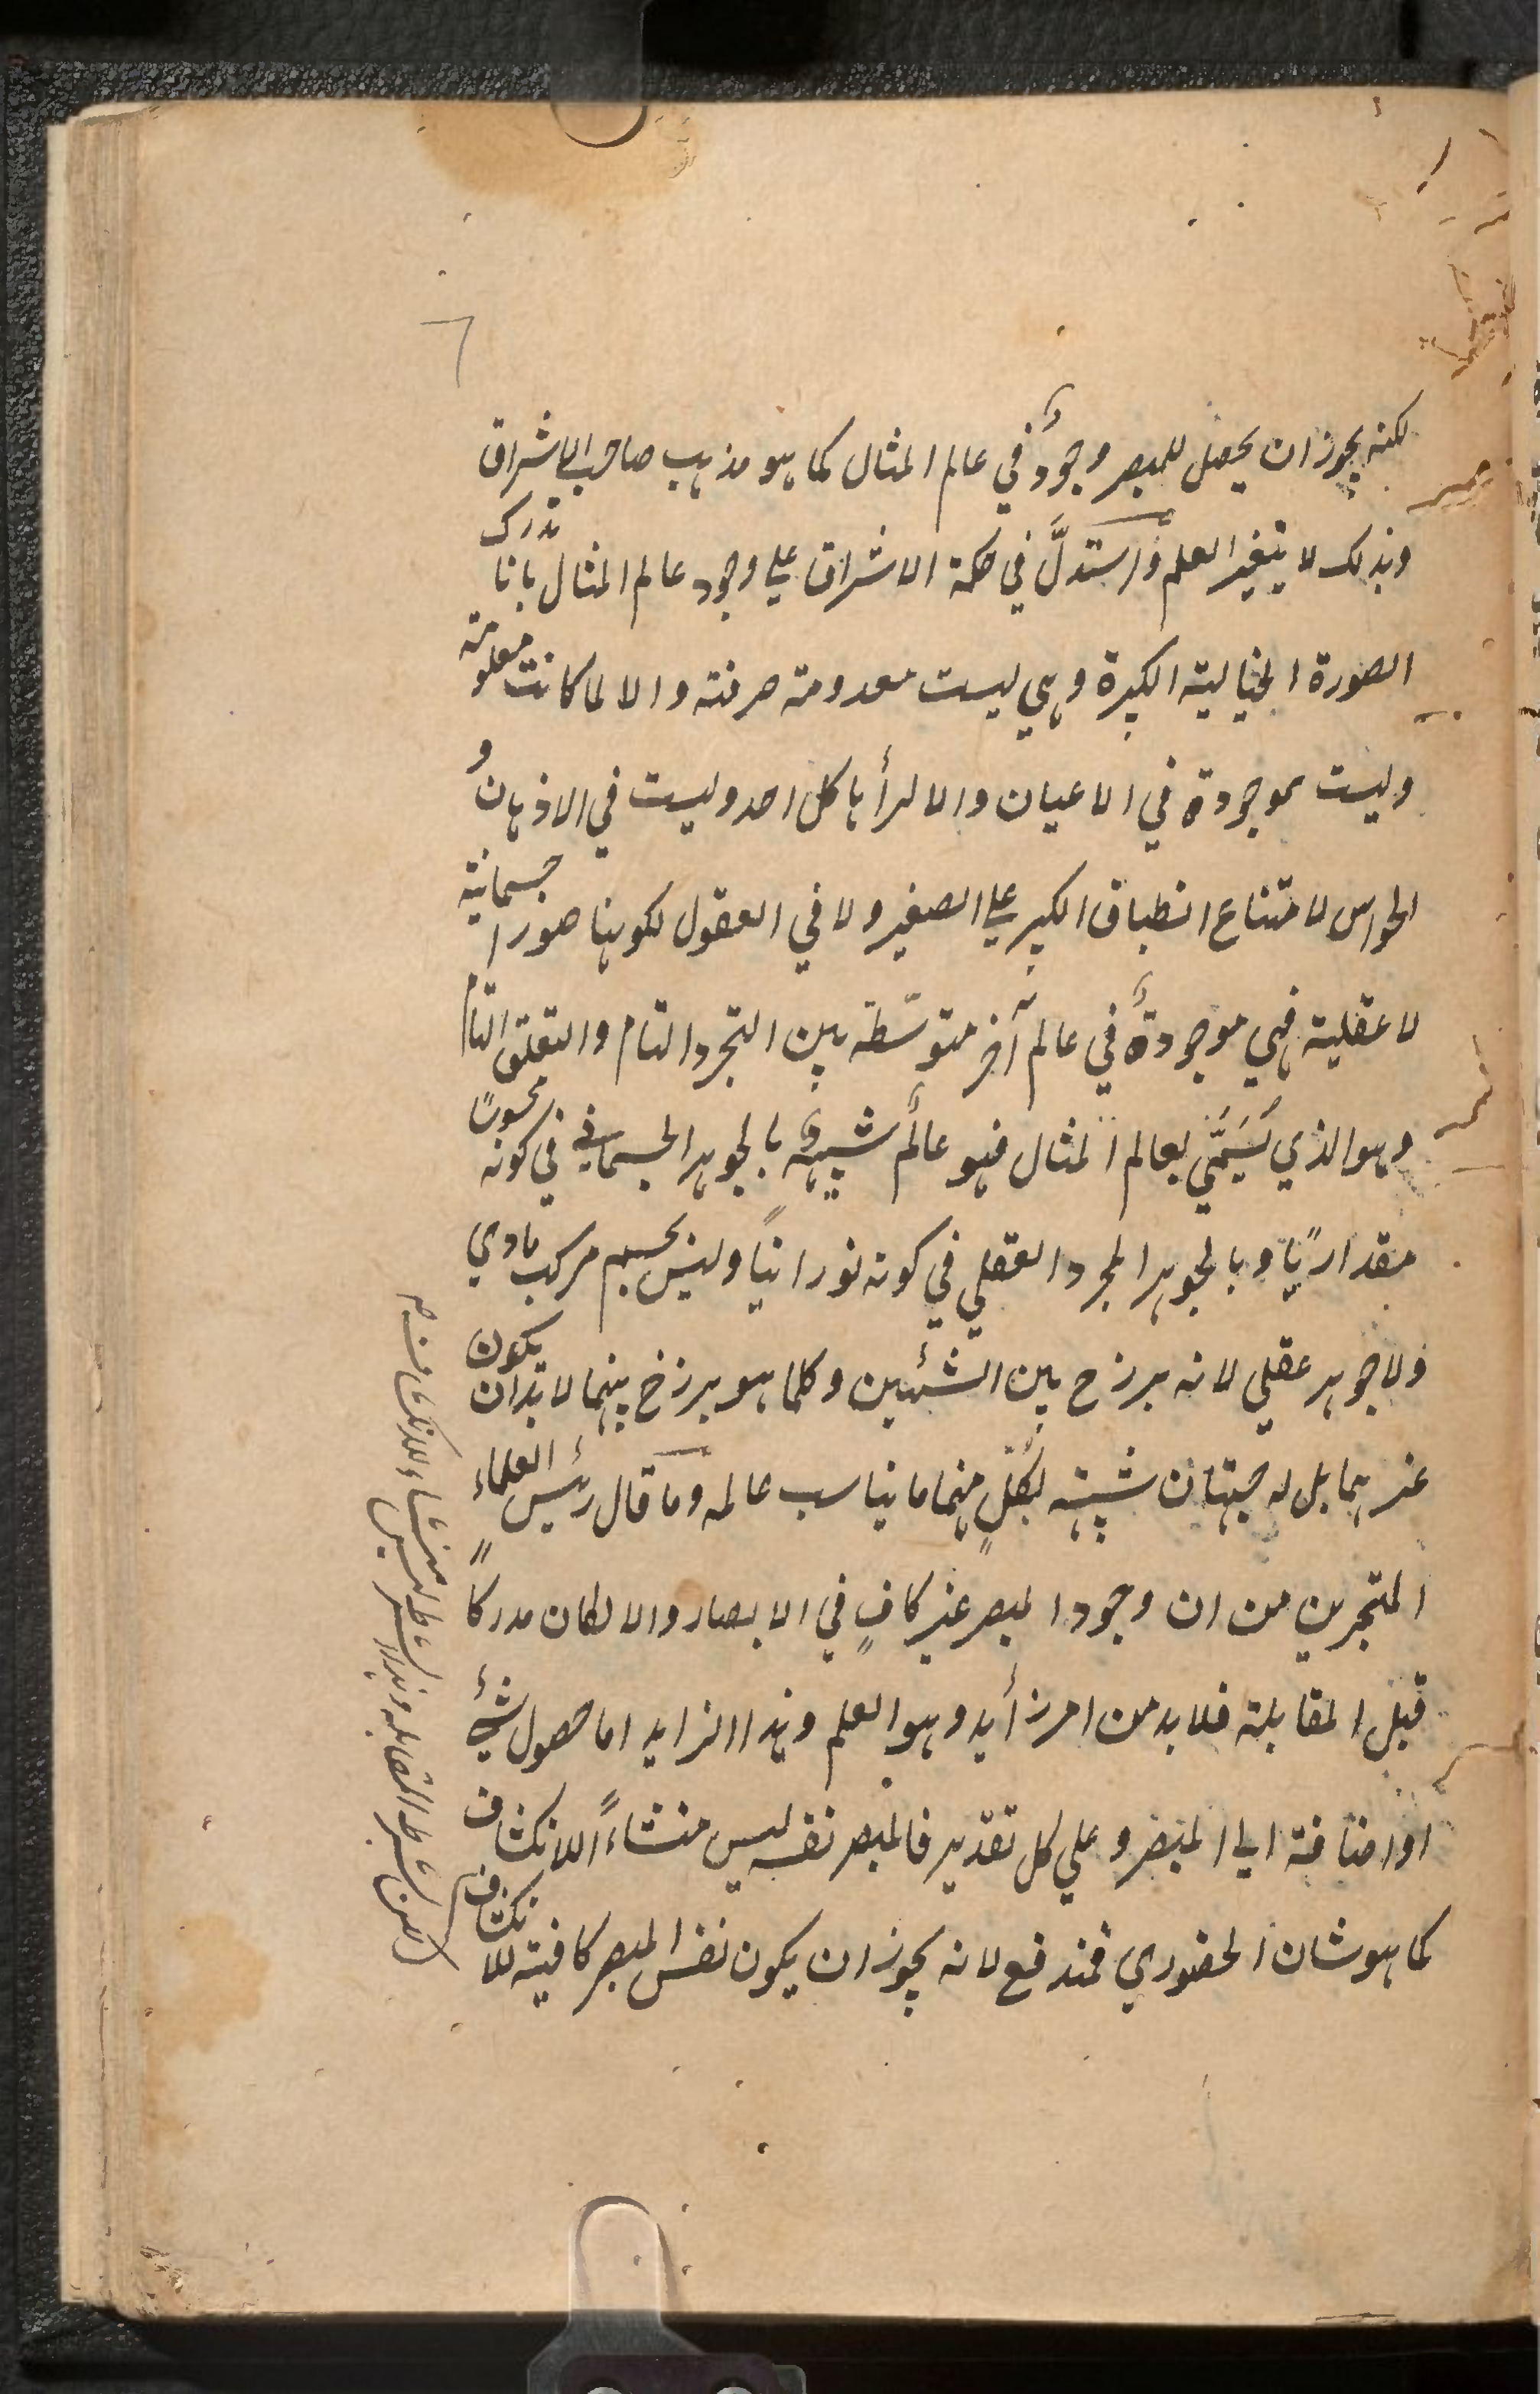 ٦
لكنه يجوز ان يحصل للمبصر وجودٌ في عالم المثال كما هو مذهب صاحب الاشراق
وبذلك لا يتغير العلم واستدلَّ في حكمة الاشراق علي وجود عالم المثال بانا ندرك
الصورة الخيالية الكبيرة وهي ليست معدومة صرفة والا لما كانت معلومة
وليست بموجودة في الاعيان والا لرأها كل احد وليست في الاذهان و
الحواس لامتناع انطباق الكبير علي الصغير ولا في العقول لكونها صورا جسمانية
لا عقلية فهي موجودةٌ في عالم آخر متوسّطة بين التجرد التام والتعلق التام
وهو الذي يُسَمَّي بعالم المثال فهو عالَمٌ شبيهٌ بالجوهر الجسماني في كونه محسوسًا
مقدارًيا وبالجوهر المجرد العقلي في كونه نورانيًا وليس بجسم مركب مادي
ولا جوهر عقلي لانه برزخ بين الشئيين وكلما هو برزخ بينهما لا بد ان يكون
غيرهما بل له جهتان شبيهه بكلٍ منهما ما يناسب عالمه وما قال رئيس العلماء
المتبحرين من ان وجود المبصر غير كافٍ في الابصار والا لكان مدركاً
قبل المقابلة فلا بد من امر زأيد وهو العلم وهذا الزايد اما حصول شئٍ
او اضافة الي المبصر و علي كل تقدير فالمبصر نفسه ليس منشاءً اللانكشاف
كما هو شان الحضوري فمندفع لانه يجوز ان يكون نفس المبصر كافية للانكشاف
لكن بشرط المقابلة وهذا الشرط ليس